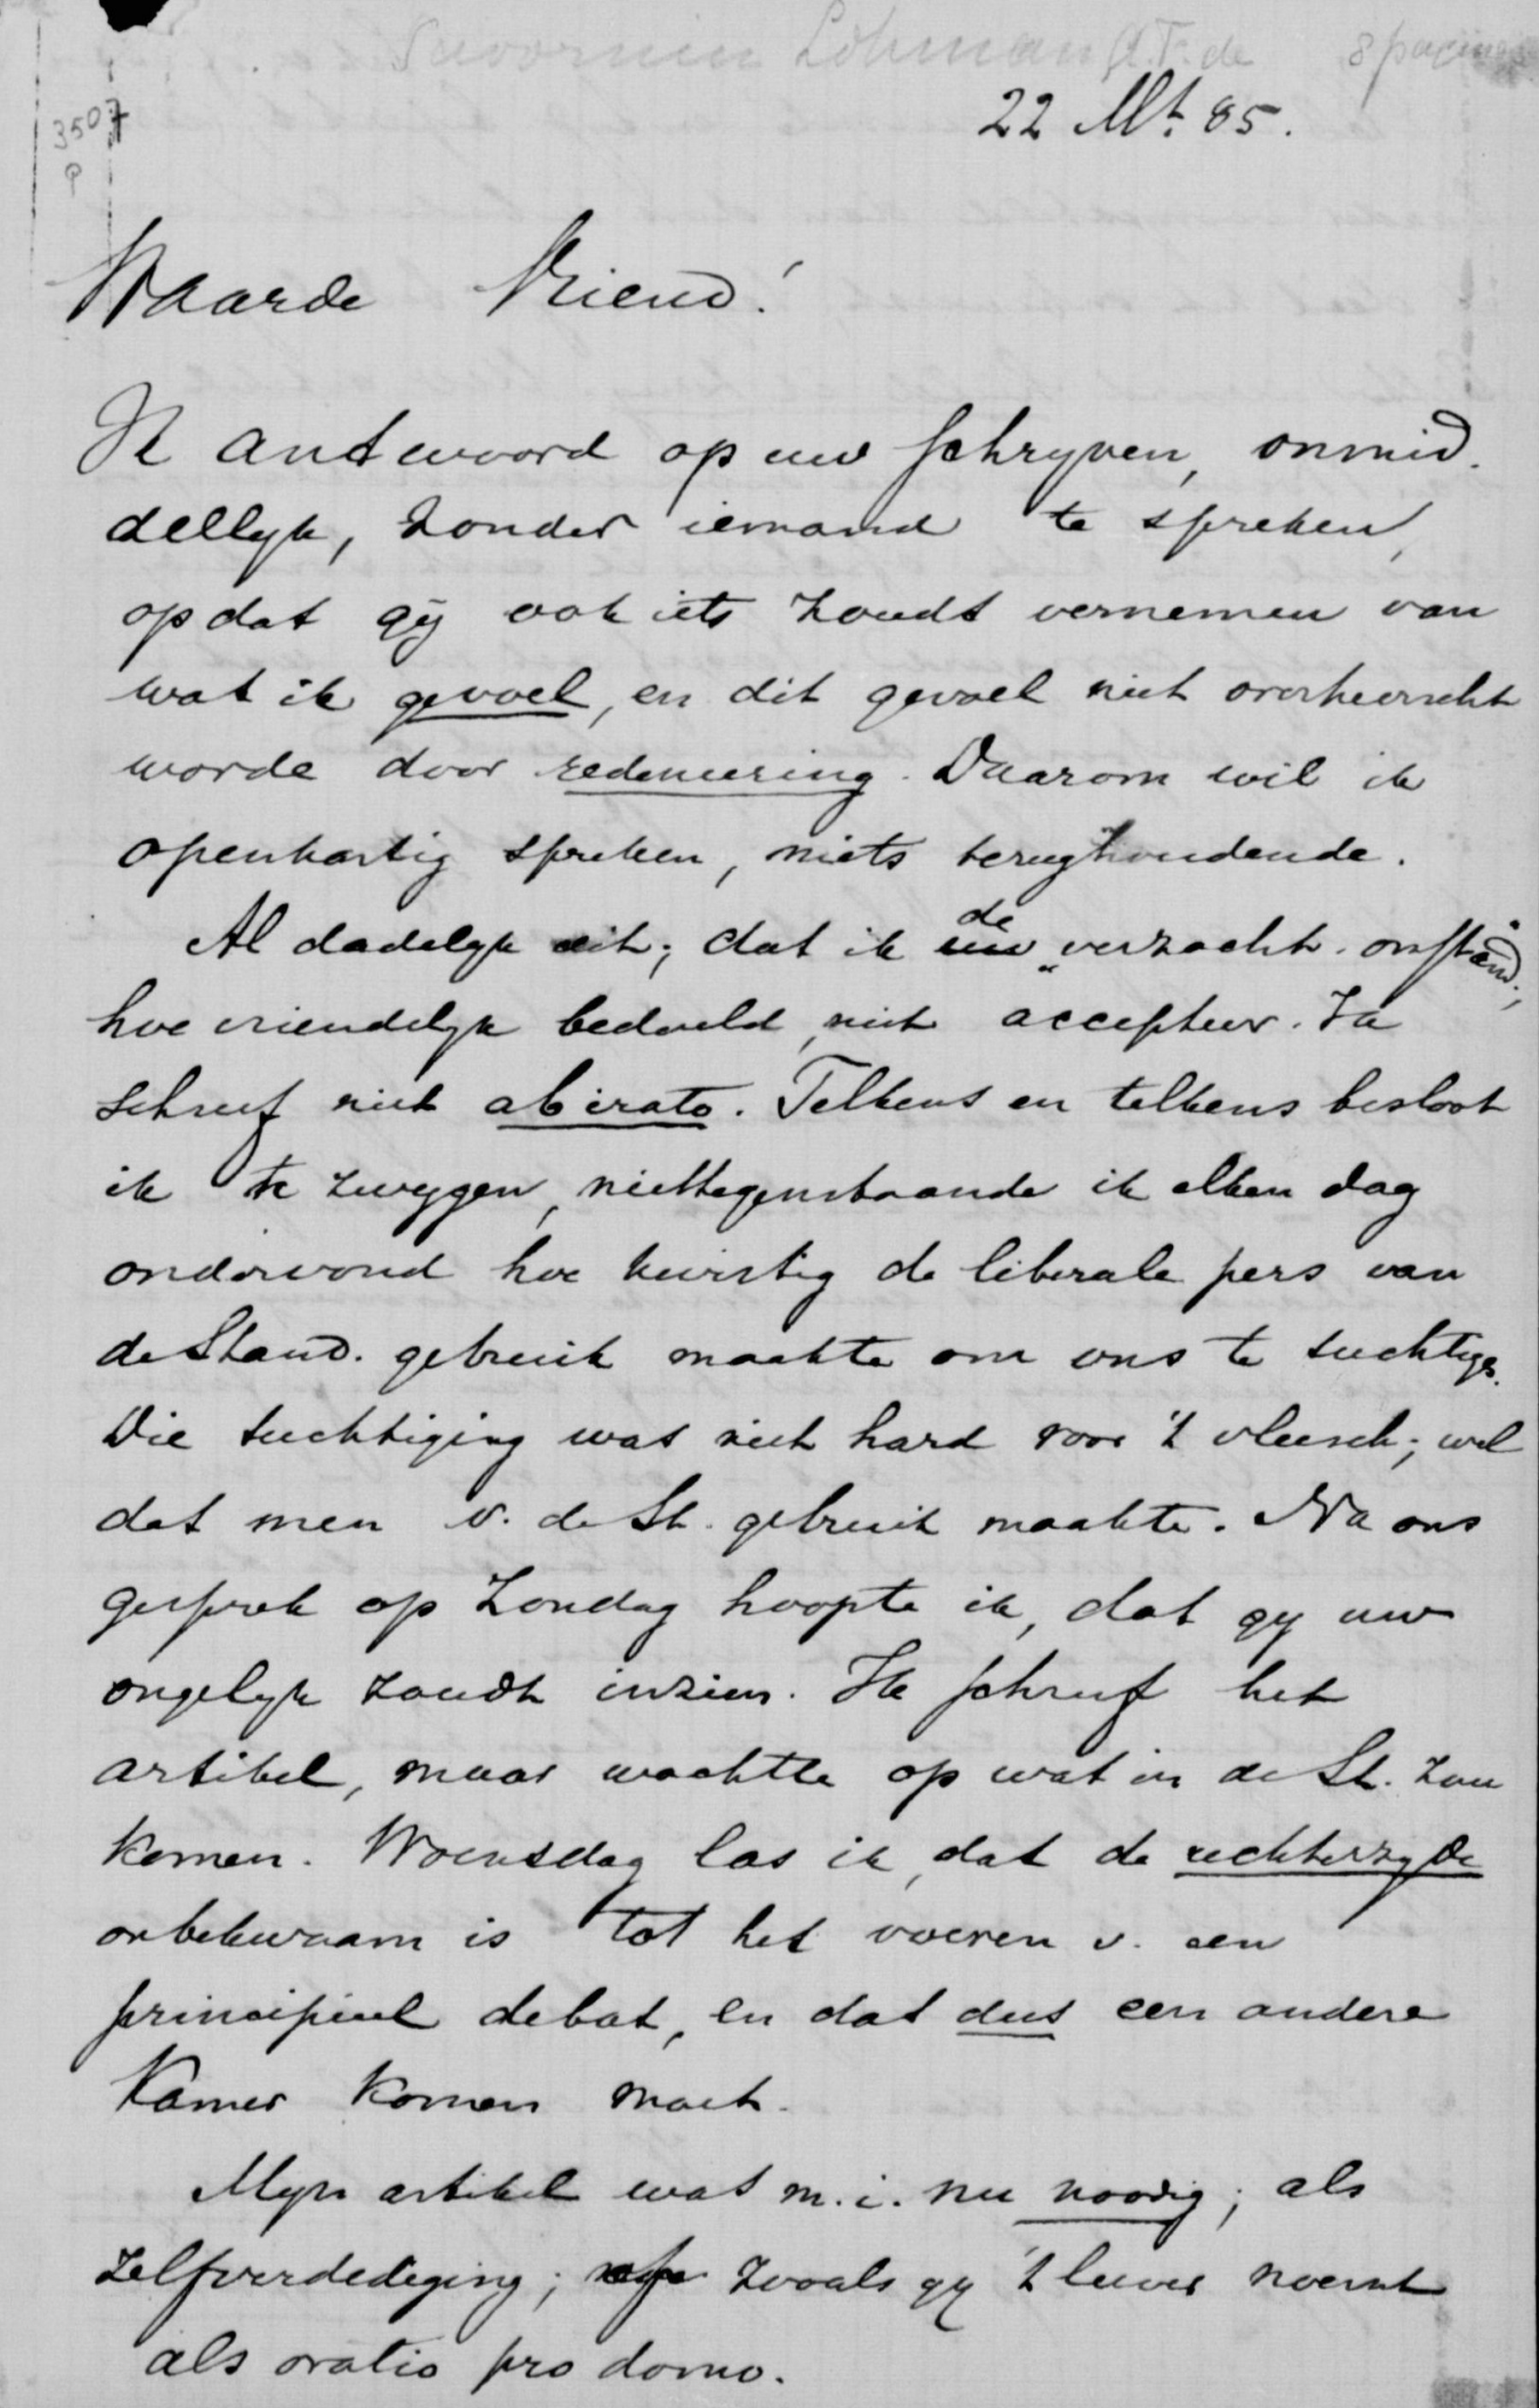 Savornin Lohman A.F. de 8 pagina's
22 Mt. 85.
3507
Waarde Vriend!
Ik antwoord op uw schryven, onmid-
dellyk, zonder iemand te spreken,
opdat gij ook iets zoudt vernemen van
wat ik gevoel, en dit gevoel niet overheerscht
worde door redeneering. Daarom wil ik
openhartig spreken, niets terughoudende.
Al dadelyk dit; dat ik de „verzacht. omstand.",
hoe vriendelyk bedoeld, niet accepteer. Ik
schreef niet ab irato. Telkens en telkens besloot
ik te zwygen, niettegenstaande ik elken dag
ondervond hoe kwistig de liberale pers van
de Stand. gebruik maakte om ons te tuchtigen.
Die tuchtiging was niet hard voor 't vleesch; wel
dat men v. de St. gebruik maakte. Na ons
gesprek op Zondag hoopte ik, dat gy uw
ongelyk zoudt inzien. Ik schreef het
artikel, maar wachtte op wat in de St. zou
komen. Woensdag las ik, dat de rechterzyde
onbekwaam is tot het voeren v. een
principieel debat, en dat dus een andere
Kamer komen moet.
Myn artikel was m.i. nu noodig; als
zelfverdediging; zooals gy 't liever noemt
als oratio pro domo.